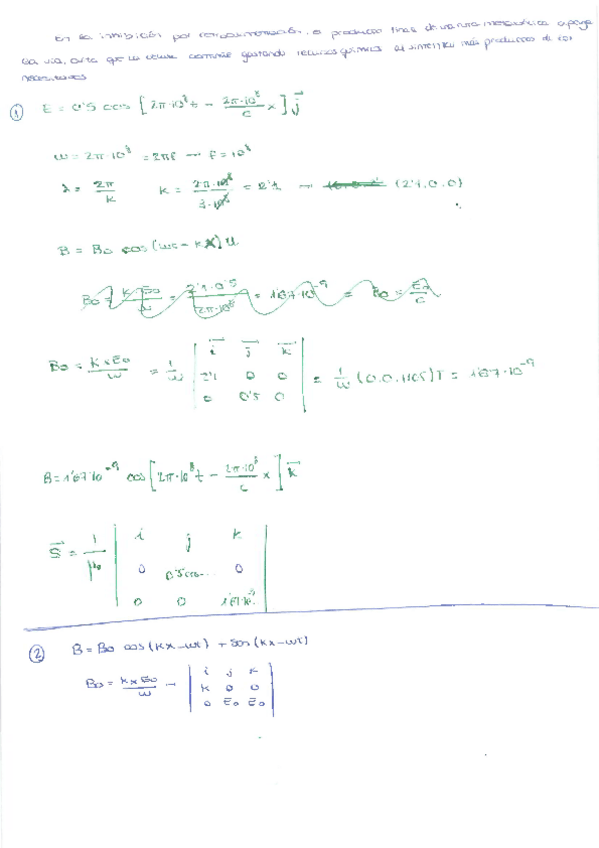 En la inhibición por retroalimentación, o producto final de una ruta metabólica apaga
esa vía, evita que la célula continúe gastando recursos químicos al sintetizar más productos de los
necesitados
① E = 0'5 cos [2π·10⁸t − 2π·10⁸/c x] j
ω = 2π·10⁸ = 2πf → f = 10⁸
λ = 2π/k K = 2π·10⁸/3·10⁸ = 2'1 → (2'1,0,0)
B = B₀ cos(ωt − kx) u
B₀ = K·E₀/ω = 2'1·0'5/2π·10⁸ = 1'67·10⁻⁹ = B₀ = E₀/c
B₀ = K×E₀/ω = 1/ω | i j k | = 1/ω (0,0,1'105)T = 1'67·10⁻⁹
2'1 0 0
0 0'5 0
B = 1'67·10⁻⁹ cos [2π·10⁸t − 2π·10⁸/c x] k
S = 1/μ₀ | i j k |
0 0'5cos... 0
0 0 1'67·10⁻⁹
② B = B₀ cos(kx − ωt) + sen(kx − ωt)
B₀ = k×E₀/ω → | i j k |
k 0 0
0 E₀ E₀